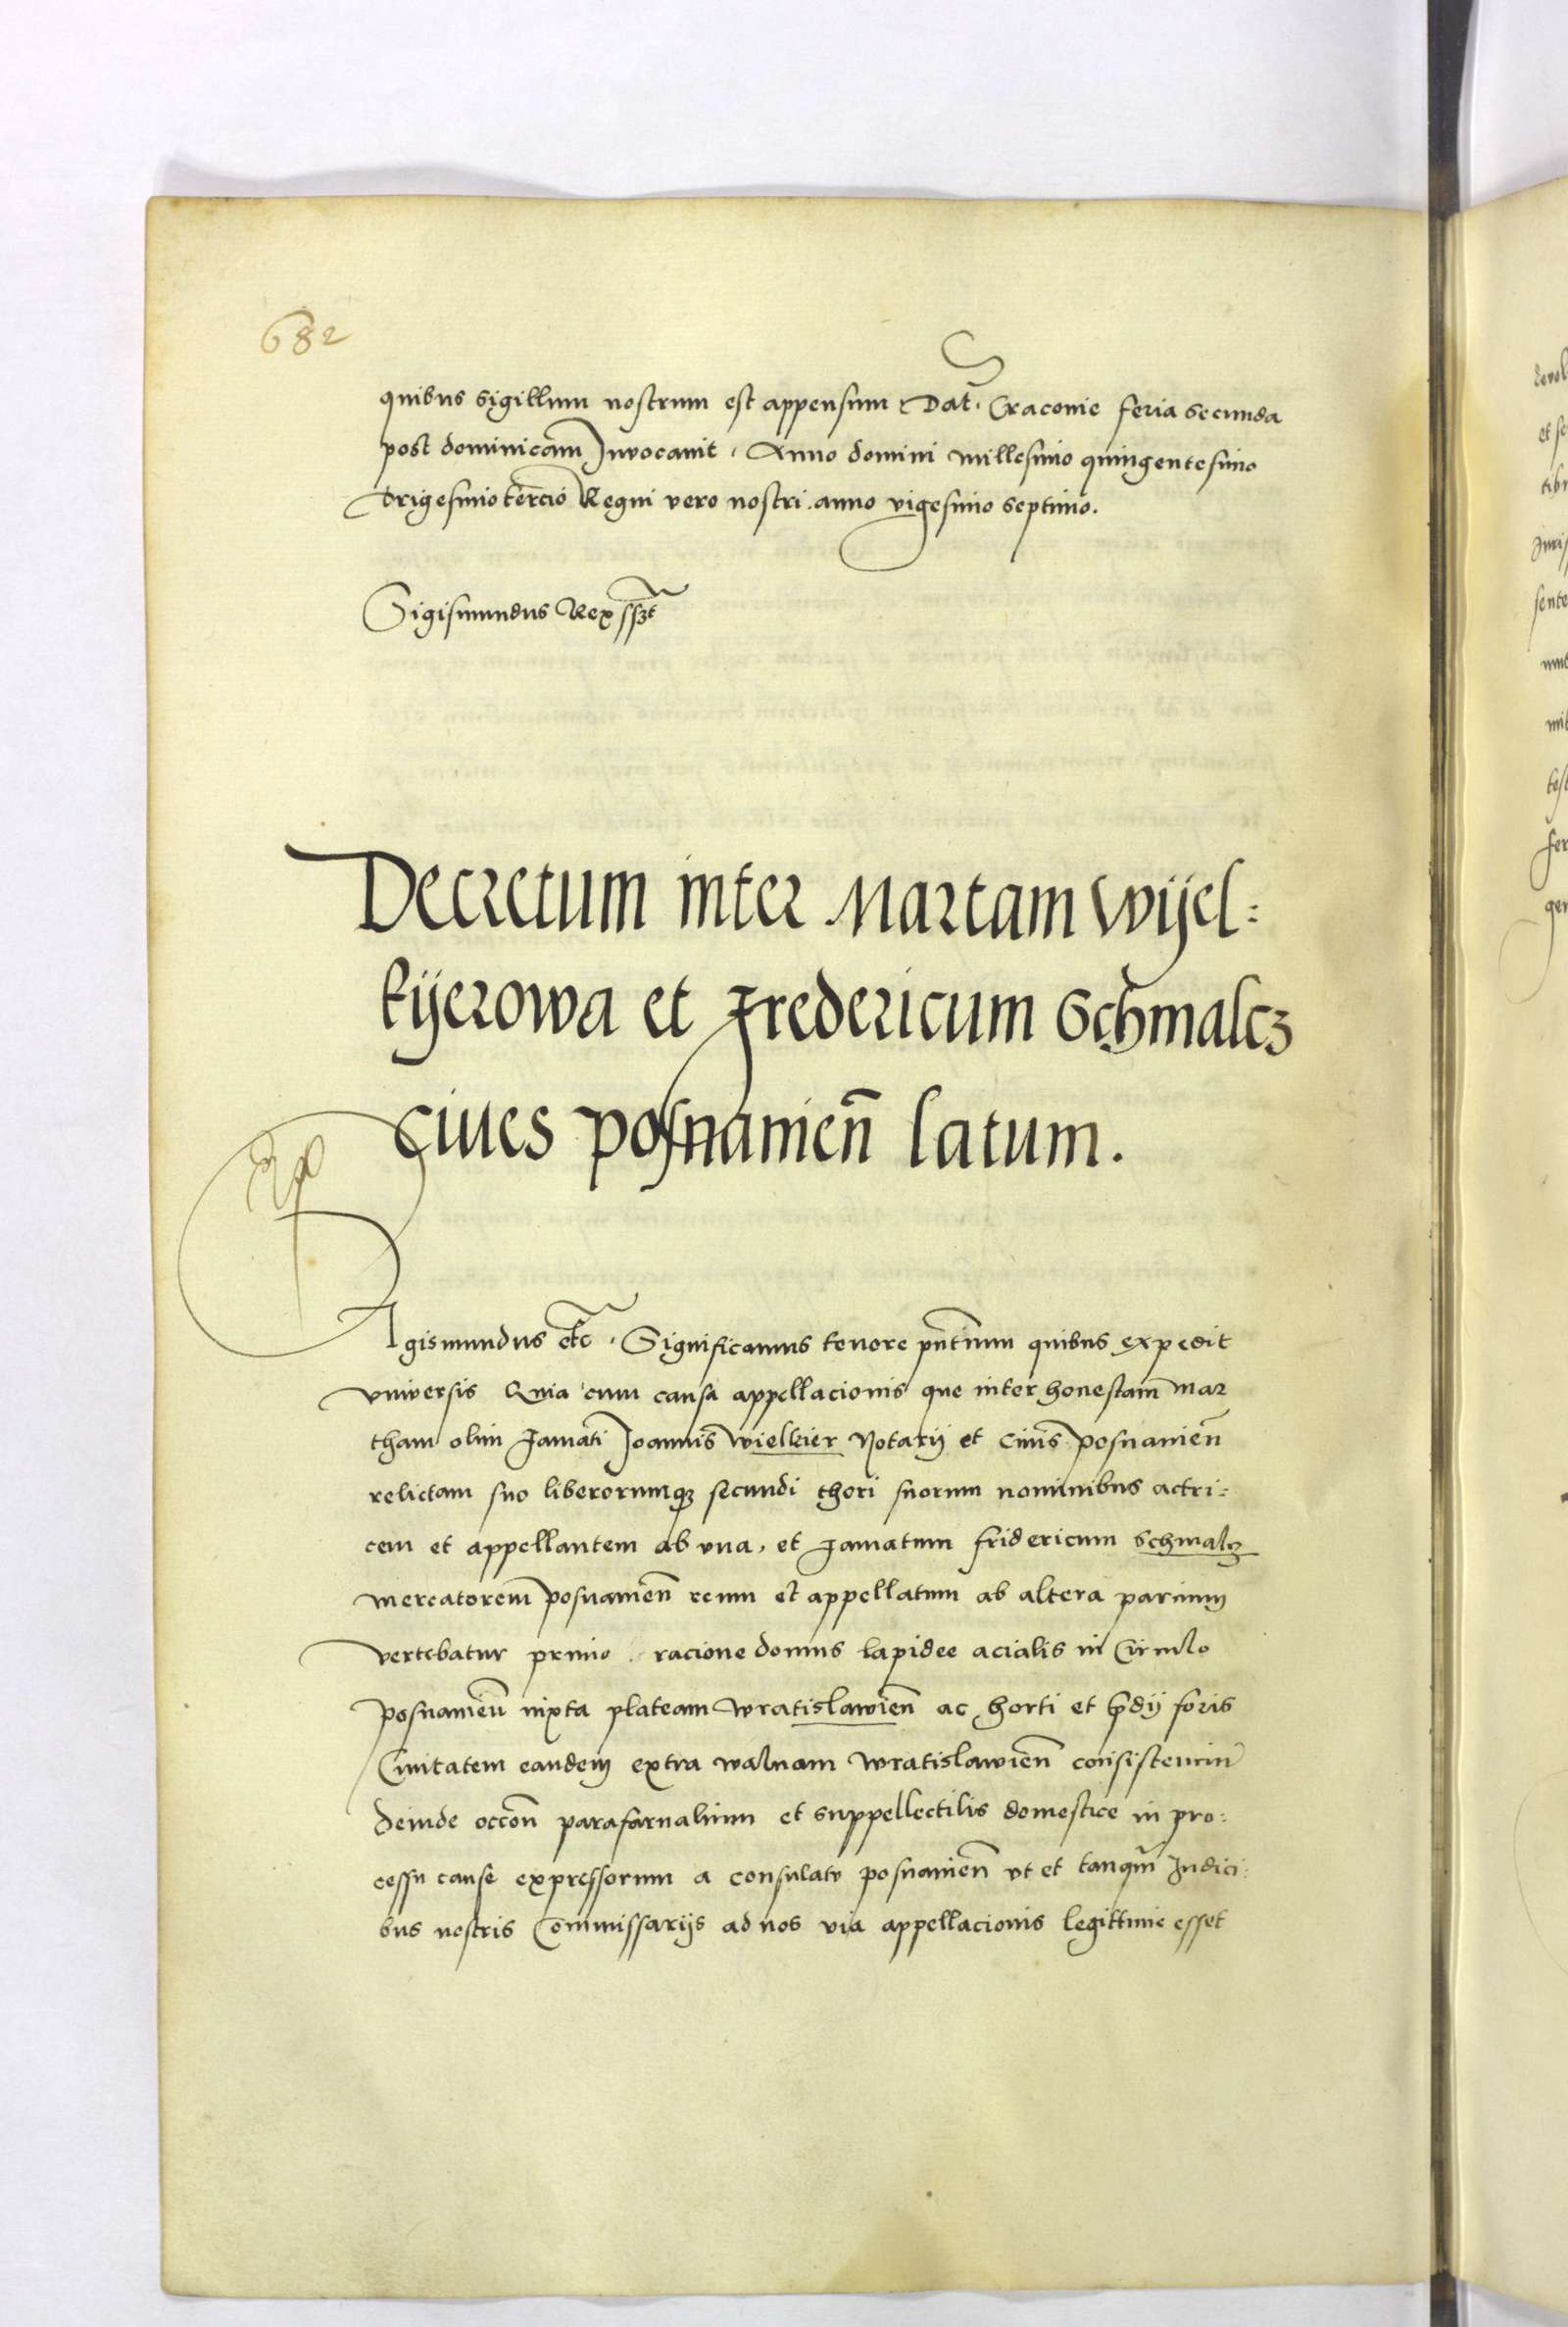 682
quibus sigillum nostrum est appensum Dat. Cracovie feria secunda
post dominicam Invocavit. Anno domini millesimo quingentesimo
trigesimo tercio Regni vero nostri anno vigesimo septimo.
Sigismundus Rex sszt
Decretum inter Martam Wijel=
kijerowa et Fredericum Schmalcz
ciues posnanien̄ latum.
Sigismundus etc. Significamus tenore pn̄tium quibus expedit
vniversis Quia cum causa appellacionis que inter honestam Mar
tham olim famati Joannis Wielkier Notarij et Ciuis posnanien̄
relictam suo liberorumqꝫ secundi thori suorum nominibus actri=
cem et appellantem ab vna, et famatum fridericum Schmalcz
mercatorem posnanien̄ reum et appellatum ab altera parcium
vertebatur primo racione domus lapidee acialis in Circulo
posnanien̄ iuxta plateam Wratislawien̄ ac horti et p̄dij foris
Ciuitatem eandem extra walvam Wratislawien̄ consistencium
deinde occōn parafarnalium et suppellectilis domestice in pro=
cessu cause expressorum a consulatu posnanien̄ vt et tanqm̄ Judici=
bus nostris Commissarijs ad nos via appellacionis legittime esset